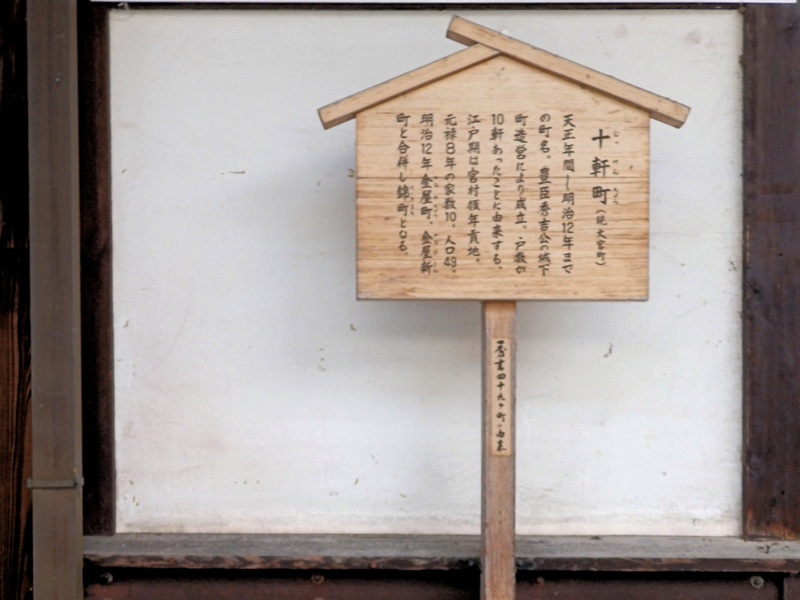 十軒町(現 大宮町)
じっ けん ちょう
天正年間―明治12年まで
の町名。豊臣秀吉公の城下
町造営により成立。戸数が
10軒あったことに由来する。
江戸期は宮村領年貢地。
元禄8年の家数10。人口49。
明治12年金屋町、金屋新
町と合併し錦町となる。
秀吉四十九ヶ町の由来